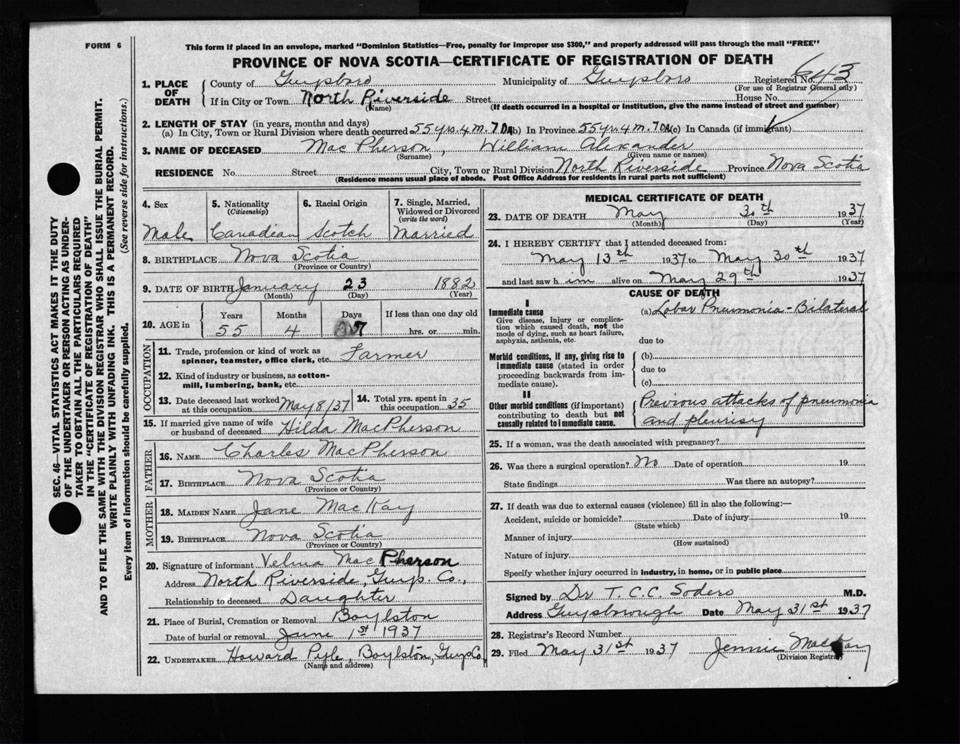 FORM 6
This form if placed in an envelope, marked "Dominion Statistics—Free, penalty for improper use $300," and properly addressed will pass through the mail "FREE"
PROVINCE OF NOVA SCOTIA—CERTIFICATE OF REGISTRATION OF DEATH
1. PLACE OF DEATH
County of Guysboro Municipality of Guysboro Registered No. 643
(For use of Registrar General only)
If in City or Town North Riverside Street House No.
(Name) (If death occurred in a hospital or institution, give the name instead of street and number)
2. LENGTH OF STAY (in years, months and days)
(a) In City, Town or Rural Division where death occurred 55 yrs. 4 m. 7 Da (b) In Province 55 yr. 4 m. 7 Da (c) In Canada (if immigrant)
3. NAME OF DECEASED MacPherson, William Alexander
(Surname) (Given name or names)
RESIDENCE No. Street City, Town or Rural Division North Riverside Province Nova Scotia
(Residence means usual place of abode. Post Office Address for residents in rural parts not sufficient)
4. Sex
Male
5. Nationality
(Citizenship)
Canadian
6. Racial Origin
Scotch
7. Single, Married, Widowed or Divorced
(write the word)
Married
8. BIRTHPLACE Nova Scotia
(Province or Country)
9. DATE OF BIRTH January 23 1882
(Month) (Day) (Year)
10. AGE in
Years Months Days If less than one day old
55 4 7 hrs. or min.
OCCUPATION
11. Trade, profession or kind of work as
spinner, teamster, office clerk, etc. Farmer
12. Kind of industry or business, as cotton-
mill, lumbering, bank, etc.
13. Date deceased last worked
at this occupation May 8/37
14. Total yrs. spent in
this occupation 35
15. If married give name of wife
or husband of deceased Hilda MacPherson
FATHER
16. NAME Charles MacPherson
17. BIRTHPLACE Nova Scotia
(Province or Country)
MOTHER
18. MAIDEN NAME Jane MacKay
19. BIRTHPLACE Nova Scotia
(Province or Country)
20. Signature of informant Velma MacPherson
Address North Riverside, Guys. Co.,
Relationship to deceased Daughter
21. Place of Burial, Cremation or Removal Boylston
Date of burial or removal June 1st 1937
22. UNDERTAKER Howard Pyle, Boylston, Guys Co,
(Name and address)
MEDICAL CERTIFICATE OF DEATH
23. DATE OF DEATH May 30th 1937
(Month) (Day) (Year)
24. I HEREBY CERTIFY that I attended deceased from:
May 13th 1937 to May 30th 1937
and last saw him alive on May 29th 1937
CAUSE OF DEATH
I
Immediate cause
Give disease, injury or complica-
tion which caused death, not the
mode of dying, such as heart failure,
asphyxia, asthenia, etc.
(a) Lobar Pneumonia - Bilateral
due to
Morbid conditions, if any, giving rise to
immediate cause (stated in order
proceeding backwards from im-
mediate cause).
(b)
due to
(c)
II
Other morbid conditions (if important)
contributing to death but not
causally related to immediate cause.
Previous attacks of pneumonia
and pleurisy
25. If a woman, was the death associated with pregnancy?
26. Was there a surgical operation? No Date of operation 19
State findings Was there an autopsy?
27. If death was due to external causes (violence) fill in also the following:—
Accident, suicide or homicide? Date of injury 19
(State which)
Manner of injury
(How sustained)
Nature of injury
Specify whether injury occurred in industry, in home, or in public place
Signed by Dr T. C. C. Sodero M.D.
Address Guysborough Date May 31st 1937
28. Registrar's Record Number
29. Filed May 31st 1937 Jennie MacKay
(Division Registrar)
SEC. 46—VITAL STATISTICS ACT MAKES IT THE DUTY
OF THE UNDERTAKER OR PERSON ACTING AS UNDER-
TAKER TO OBTAIN ALL THE PARTICULARS REQUIRED
IN THE "CERTIFICATE OF REGISTRATION OF DEATH"
AND TO FILE THE SAME WITH THE DIVISION REGISTRAR WHO SHALL ISSUE THE BURIAL PERMIT.
WRITE PLAINLY WITH UNFADING INK. THIS IS A PERMANENT RECORD.
Every item of information should be carefully supplied. (See reverse side for instructions.)